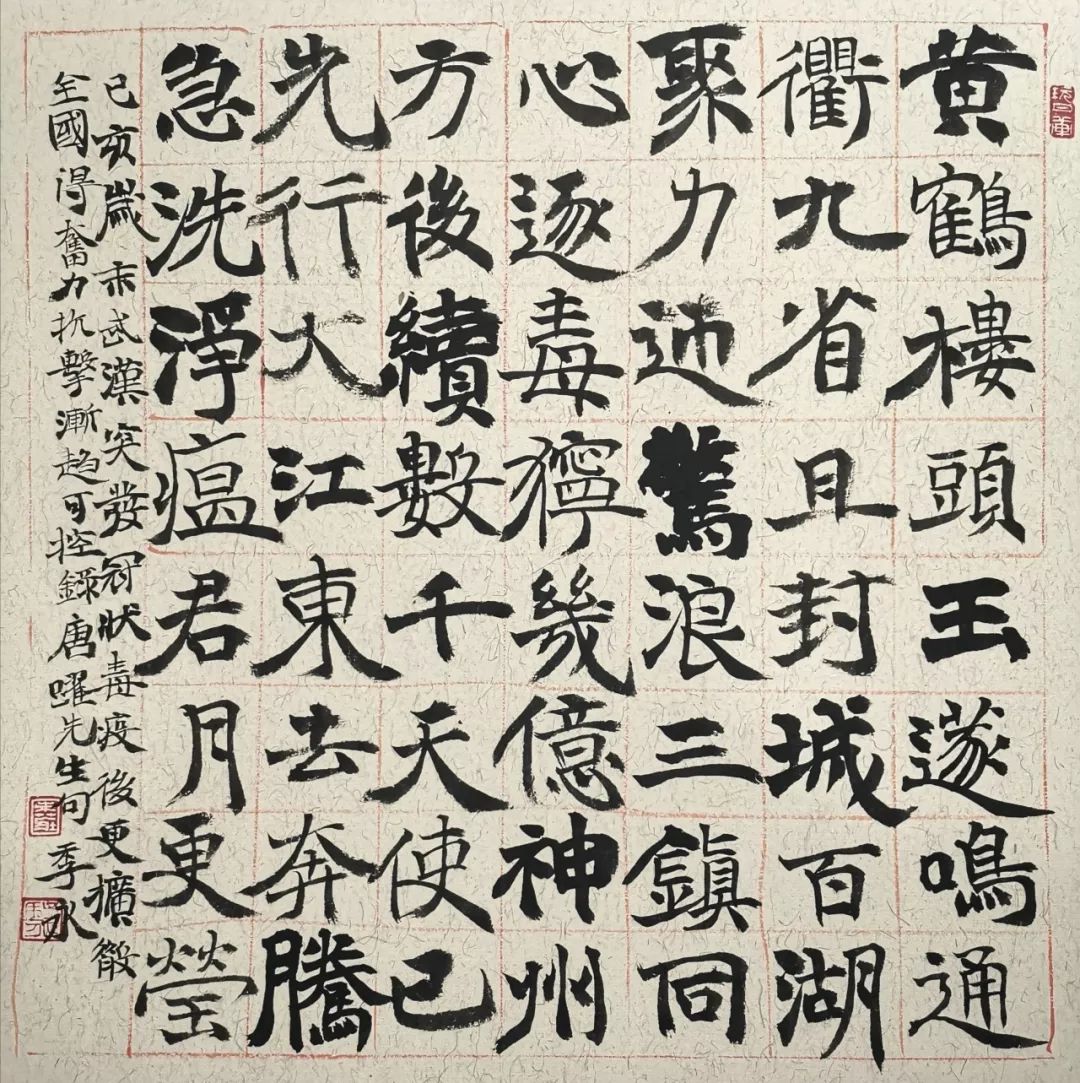 黄鶴樓頭玉遂鳴通
衢九省且封城百湖
聚力迊驚浪三鎮同
心逐毒獰幾億神州
方後續數千天使已
先行大江東去奔騰
急洗淨瘟君月更瑩
己亥歲末武漢突發冠狀毒疫後更擴散
全國得奮力抗擊漸趋可控錄唐躍先生句 季永